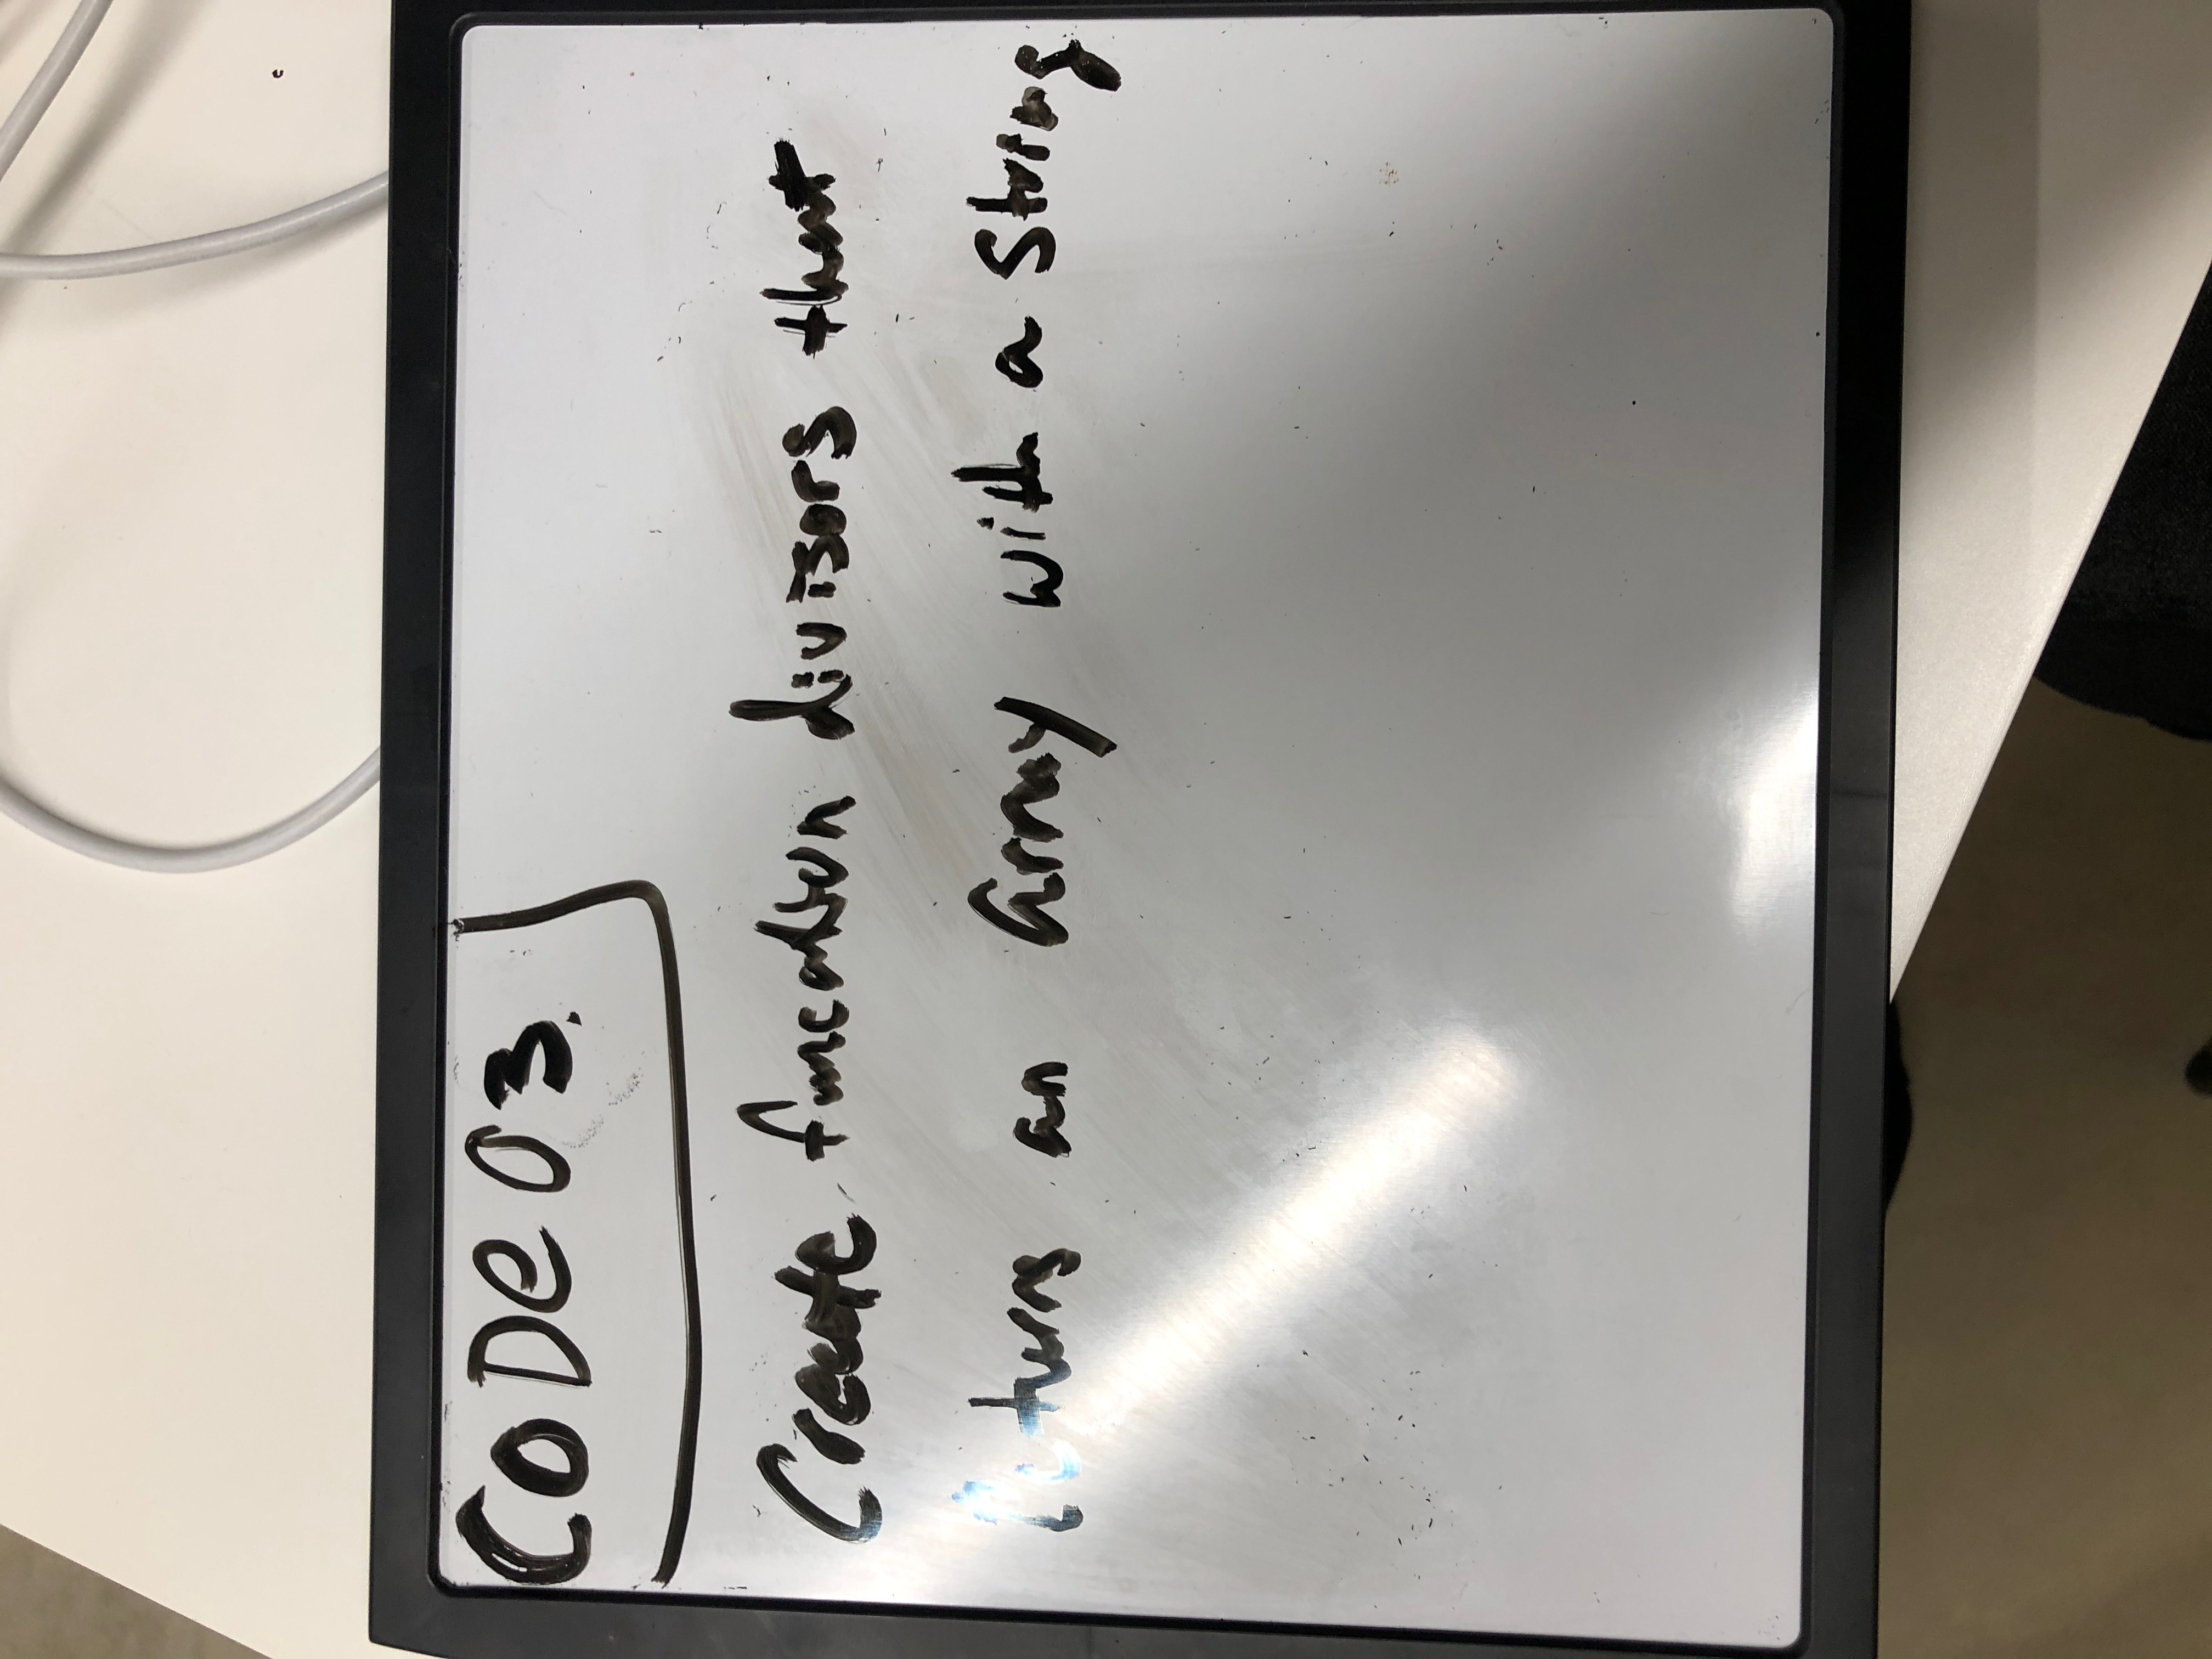 CoDe 03.
Create function divisors that
Returns an array with a String